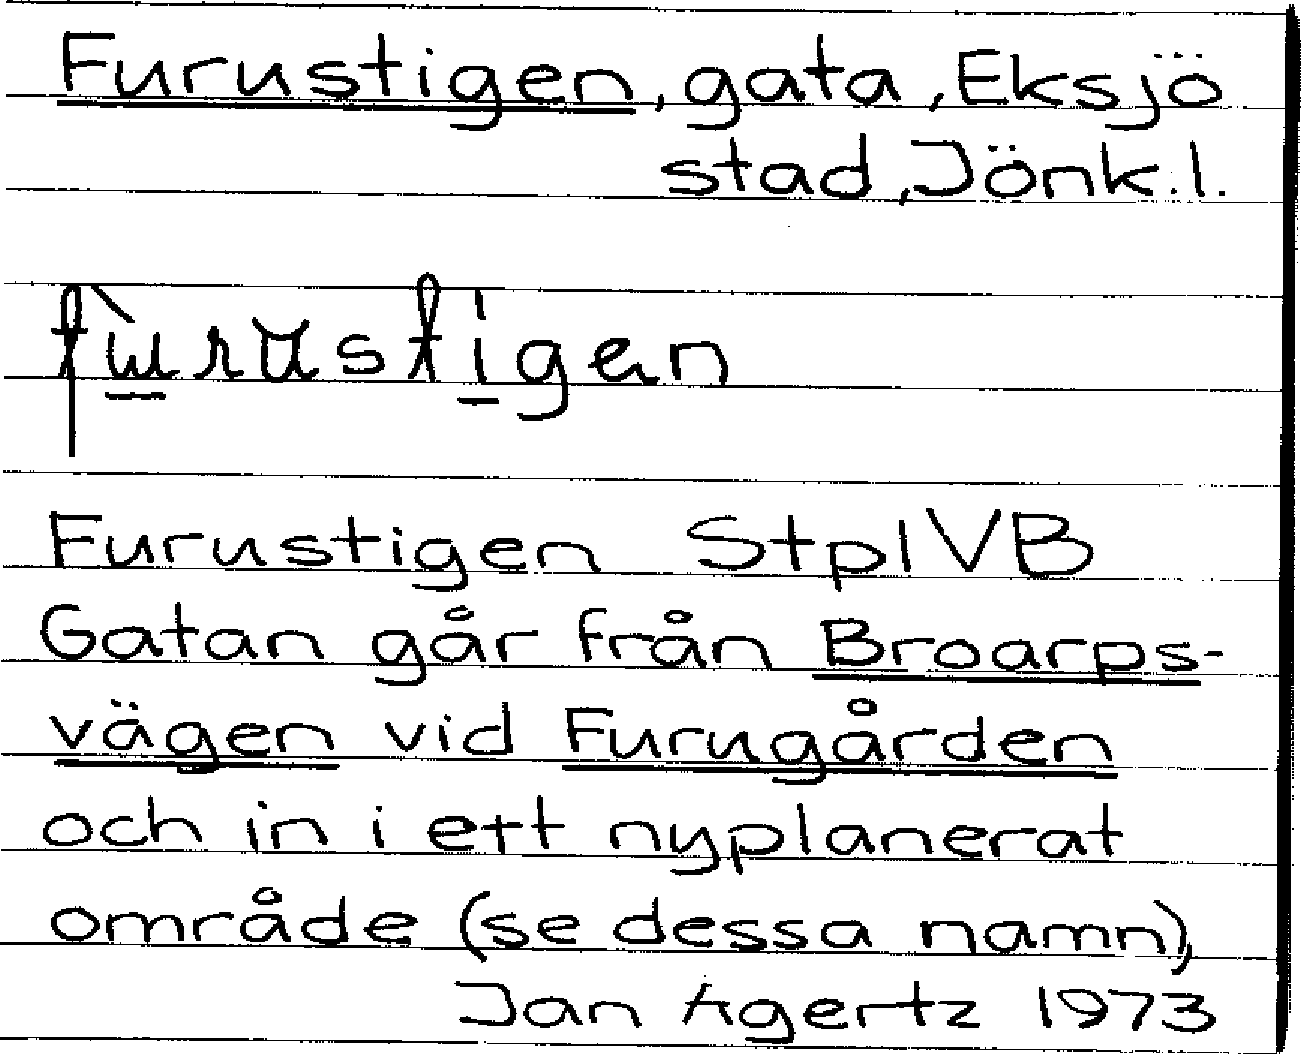 Furustigen, gata, Eksjö
stad, Jönk.l.
fùrustigen
Furustigen StplVB
Gatan går från Broarps-
vägen vid Furugården
och in i ett nyplanerat
område (se dessa namn),
Jan Agertz 1973